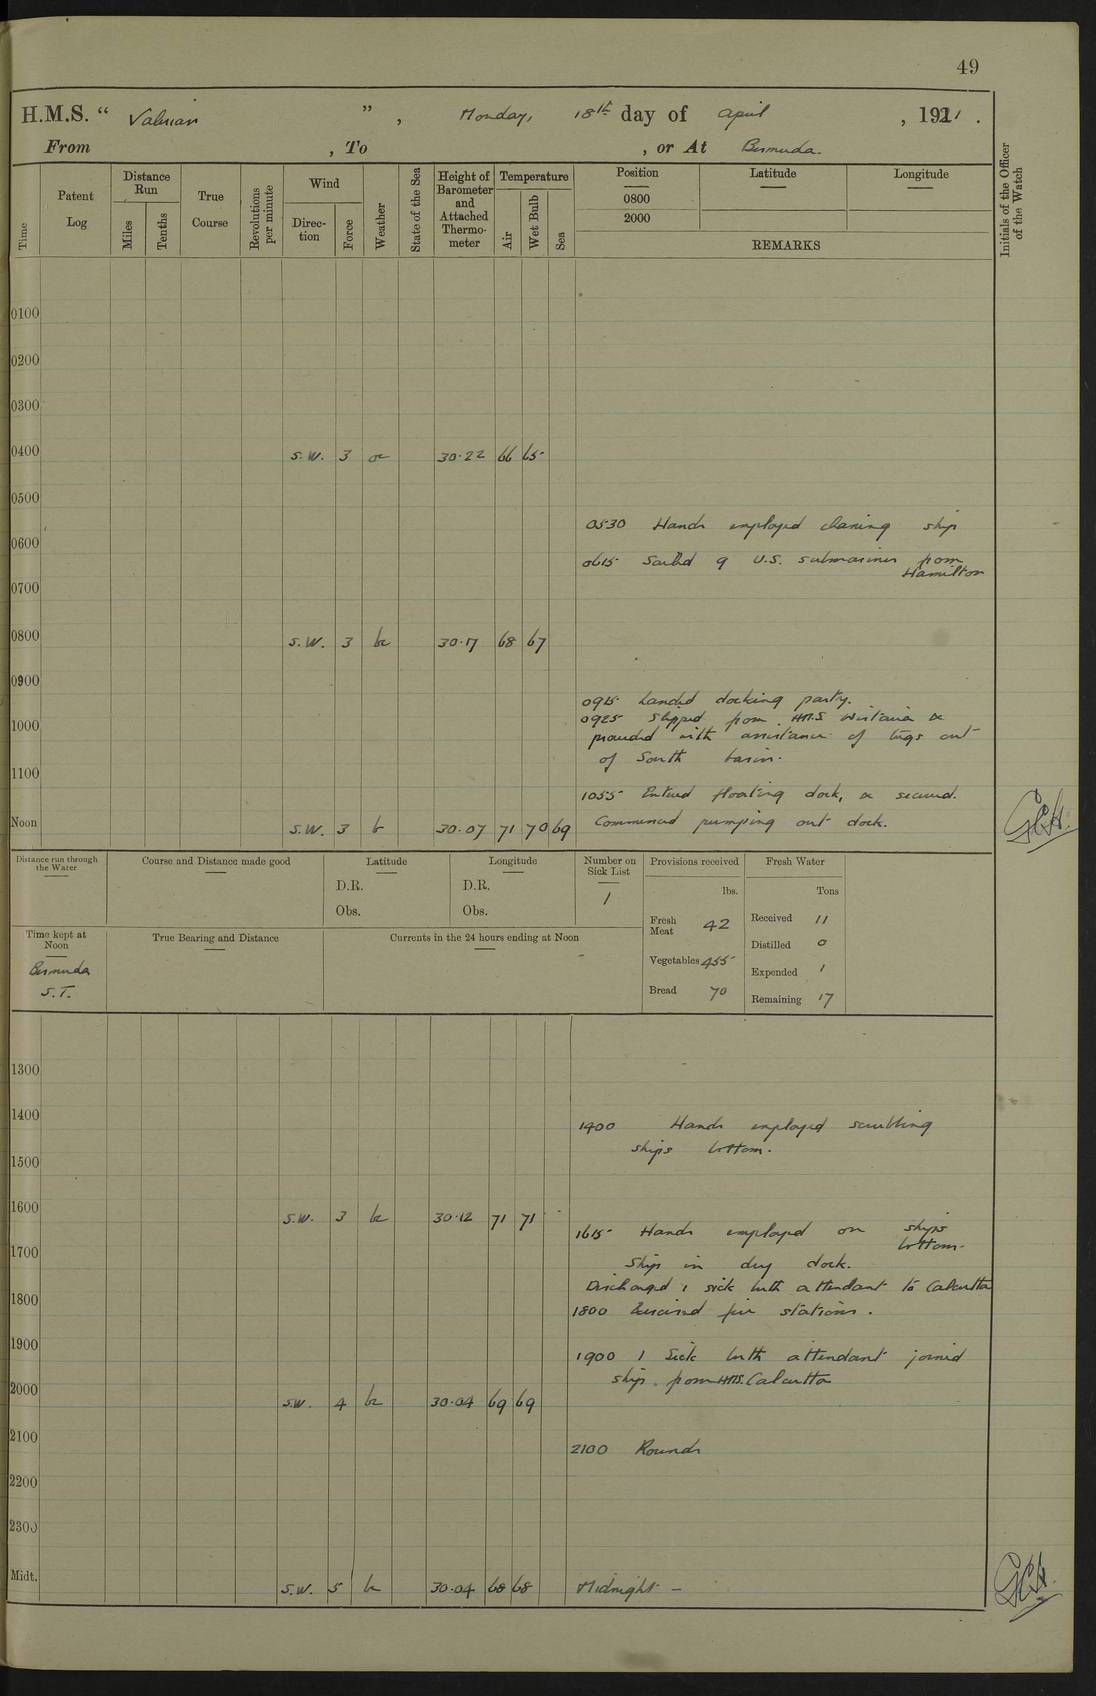 49
H.M.S. " Valerian ", Monday, 18th day of April, 1921.
From , To , or At Bermuda.
Time
Patent Log
Distance Run
Miles
Tenths
True Course
Revolutions per minute
Wind
Direction
Force
Weather
State of the Sea
Height of Barometer and Attached Thermometer
Temperature
Air
Wet Bulb
Sea
Position
0800
2000
Latitude
Longitude
REMARKS
Initials of the Officer of the Watch
0100
0200
0300
0400 S.W. 3 oc 30.22 66 65
0500
0530 Hands employed cleaning ship
0600
0615 Sailed 9 U.S. submarines from
Hamilton
0700
0800 S.W. 3 bc 30.17 68 67
0900
0915 Landed docking party.
0925 Slipped from H.M.S Wistaria &
proceeded with assistance of tugs out
1000
of South basin.
1100
1055 Entered floating dock, & secured.
Noon S.W. 3 b 30.07 71 70 69 Commenced pumping out dock.
Distance run through the Water
Course and Distance made good
Latitude
D.R.
Obs.
Longitude
D.R.
Obs.
Number on Sick List
1
Provisions received
lbs.
Fresh Meat 42
Vegetables 455
Bread 70
Fresh Water
Tons
Received 11
Distilled 0
Expended 1
Remaining 17
Time kept at Noon
Bermuda
S.T.
True Bearing and Distance
Currents in the 24 hours ending at Noon
1300
1400
1400 Hands employed scrubbing
ships bottom.
1500
1600 S.W. 3 bc 30.12 71 71
1615 Hands employed on ships
bottom.
1700
Ship in dry dock.
Discharged 1 sick berth attendant to Calcutta
1800
1800 Exercised fire stations.
1900
1900 1 Sick berth attendant joined
ship from H.M.S. Calcutta
2000 S.W. 4 bc 30.04 69 69
2100
2100 Rounds
2200
2300
Midt. S.W. 5 bc 30.04 68 68 Midnight —